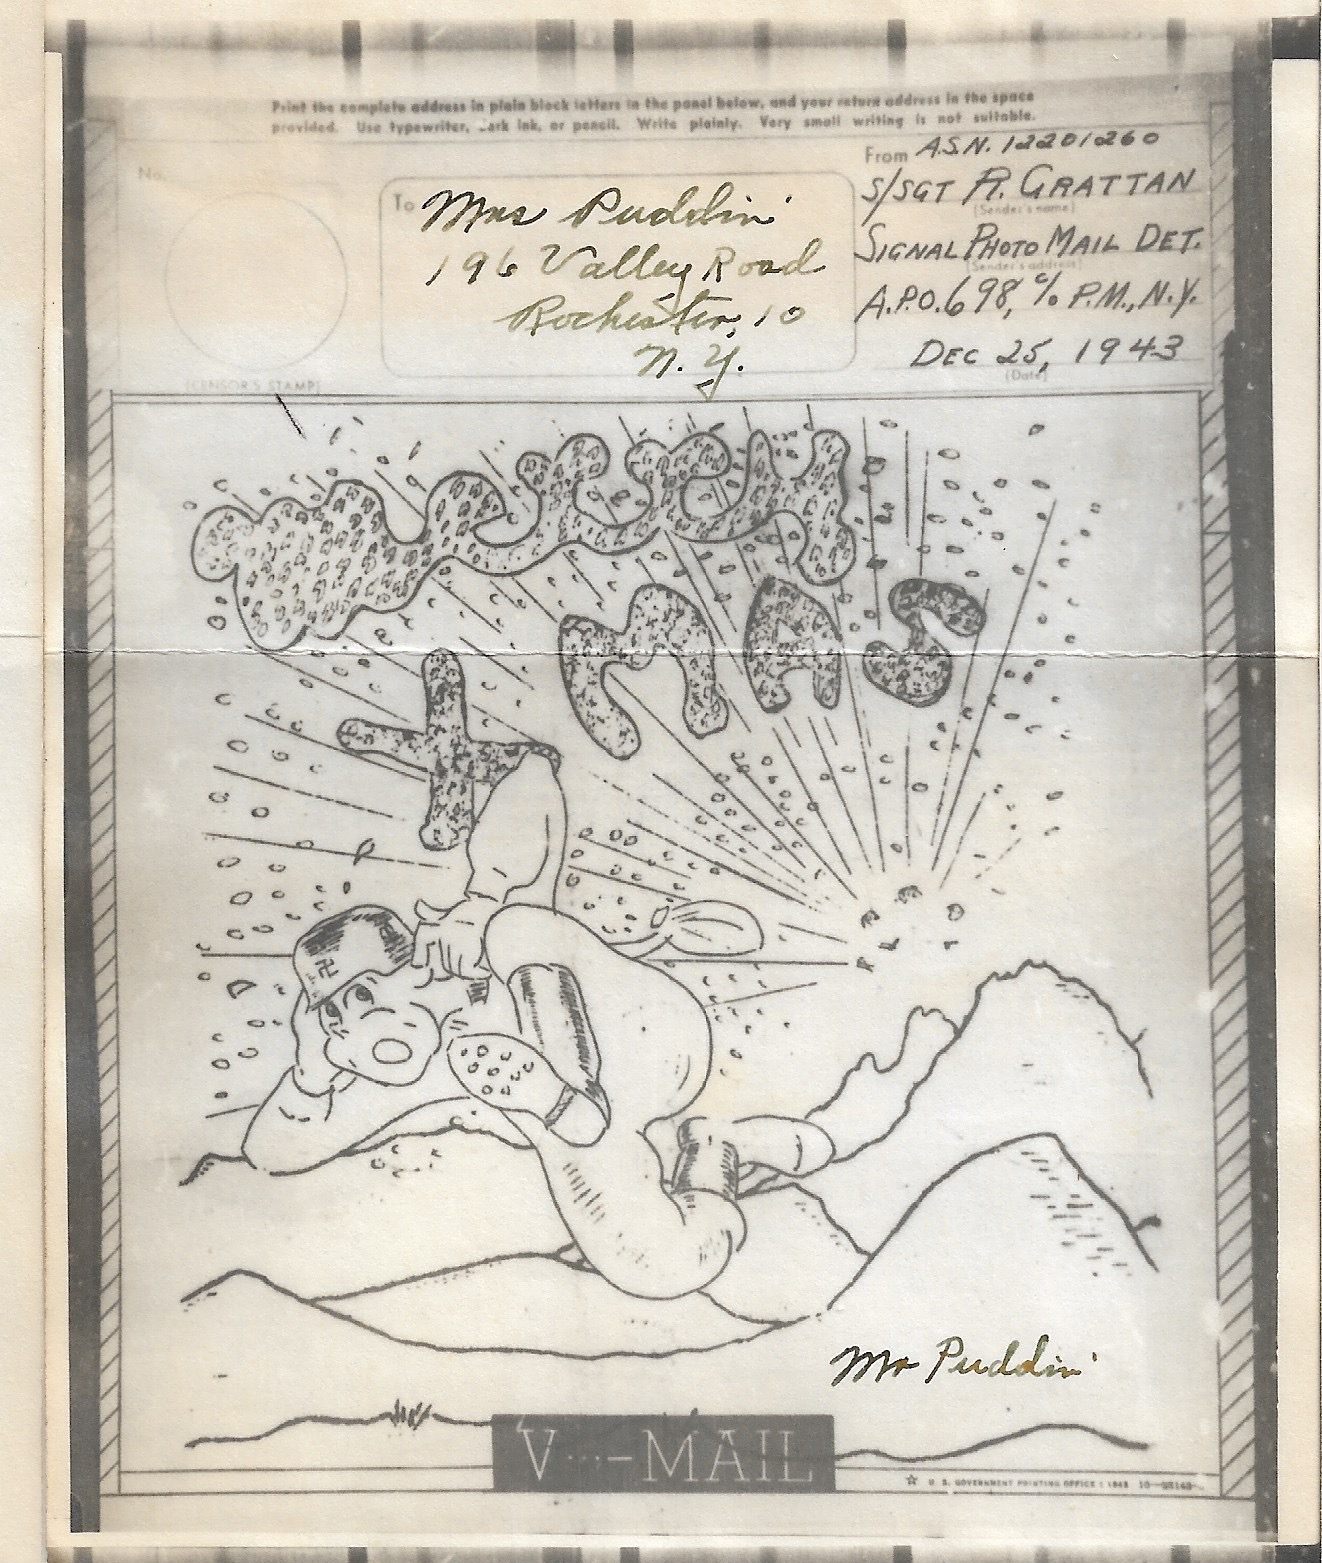 Print the complete address in plain block letters in the panel below, and your return address in the space
provided. Use typewriter, dark ink, or pencil. Write plainly. Very small writing is not suitable.
No.
(CENSOR'S STAMP)
To
Mrs Puddin'
196 Valley Road
Rochester, 10
N. Y.
From A.S.N. 12201260
S/SGT R. GRATTAN
(Sender's name)
SIGNAL PHOTO MAIL DET.
(Sender's address)
A.P.O. 698, % P.M., N.Y.
DEC 25, 1943
(Date)
MERRY
XMAS
Mr Puddin'
V···—MAIL
☆ U. S. GOVERNMENT PRINTING OFFICE : 1943